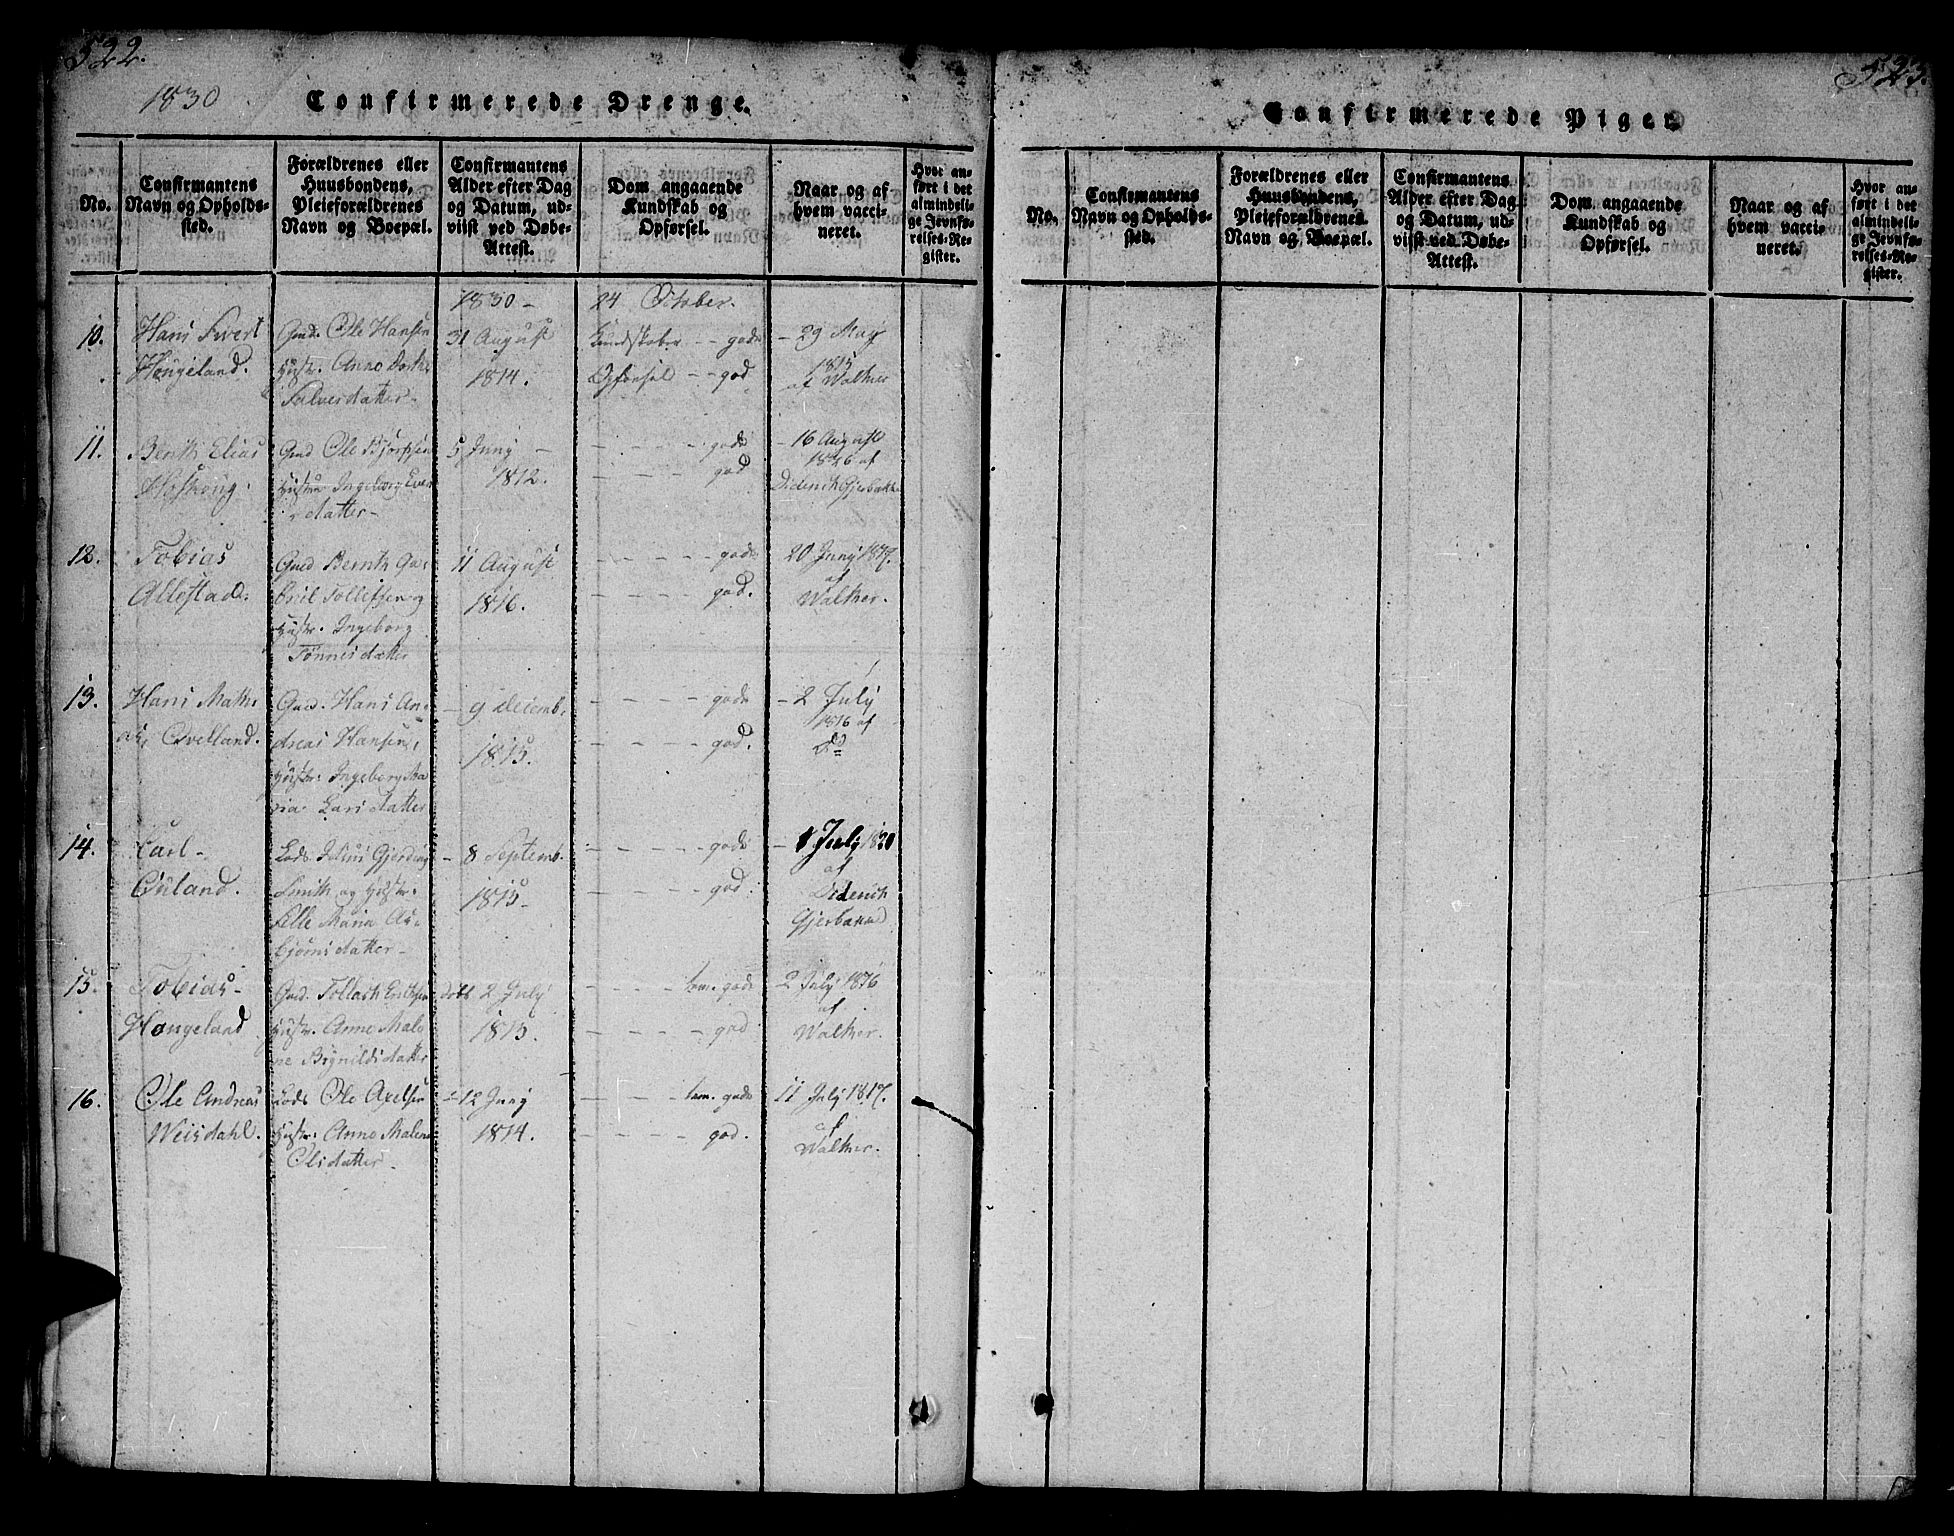 522.
1830
Confirmerede Drenge.
No.
Confirmantens
Navn og Opholds-
sted.
Forældrenes eller
Huusbondens,
Pleieforældrenes
Navn og Boepæl.
Confirmantens
Alder efter Dag
og Datum, ud-
viist ved Døbe-
Attest.
Dom angaaende
Kundskab og
Opførsel.
Naar og af
hvem vacci-
neret.
Hvor an-
ført i det
almindeli-
ge Jevnfø-
relses-Re-
gister.
1830 - 24 October.
10.
Hans
Hougeland.
Gmd. Ole Hansen
Hustr. Anne
31 August
1814.
Kundskaber - - gode
Opførsel - - god
- 29 May
1815
af Walther
11.
Bernth Elias
Gmd Ole
Hustrue Ingeborg
datter -
5 Juny -
1812.
- - - - gode
god
- 16 August
1826 af
Diderich Gjerbakke
12.
Tobias
Allestad.
Gmd Bernth Ga-
briel Tollefsen og
Hustr. Ingeborg
Tønnesdatter
11 August
1816.
- - - - gode
- - - - god.
20 Juny 1817.
af
Walther.
13.
Hans Math-
Qvelland.
Gmd. Hans An-
dreas Hansen,
Hustr. Ingeborg Ma-
ria Larsdatter
- 9 Decemb.
1815.
- - - - gode
- - - - god.
- 2 July
1816 af
Do
14.
Carl -
Øuland.
Lods Gjerding
Smith og Hustr.
Elle Maria As-
bjørnsdatter -
- 8 Septemb.
1815 -
- - - - gode
- - - - god.
- July 1820
af
Diderich
Gjerbakke
15.
Tobias -
Hougeland
Gmd. Tollach Erichsen
Hustr. Anne Male-
ne datter
døbt 2 July
1815.
- - - tem. gode
- - - - god
2 July 1816
af
Walther.
16.
Ole Andreas
Weisdahl.
Lods Ole Axelsen
Hustr. Anne Malene
Olsdatter -
- 12 Juny
1814.
- - - tem. gode
- - - - god.
11 July 1817.
af
Walther.
523.
Confirmerede Piger.
No.
Confirmantens
Navn og Opholds-
sted.
Forældrenes eller
Huusbondens,
Pleieforældrenes
Navn og Boepæl.
Confirmantens
Alder efter Dag
og Datum, ud-
viist ved Døbe-
Attest.
Dom angaaende
Kundskab og
Opførsel.
Naar og af
hvem vacci-
neret.
Hvor an-
ført i det
almindeli-
ge Jevnfø-
relses-Re-
gister.